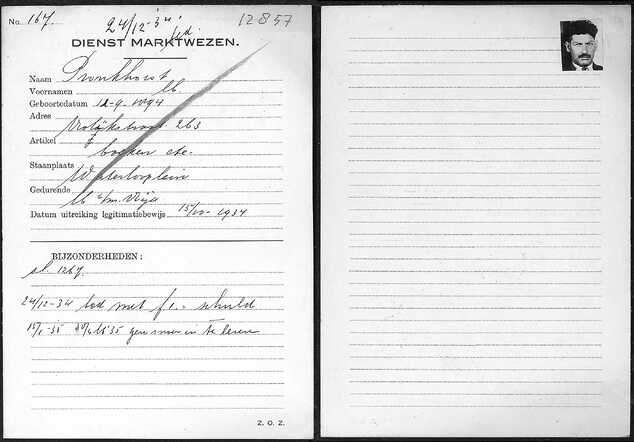 No. 167. 24/12-'34 12857
DIENST MARKTWEZEN.
Naam Pronkhorst
Voornamen M
Geboortedatum 12-9-1894
Adres
Vrolijkstraat 263
Artikel
boeken etc.
Staanplaats
Waterlooplein
Gedurende
M t/m Vrijd
Datum uitreiking legitimatiebewijs 1934
BIJZONDERHEDEN:
pl. 1267.
24/12-34 bed met f 1.- schuld
15/1-35 geen meer in te leveren
Z. O. Z.